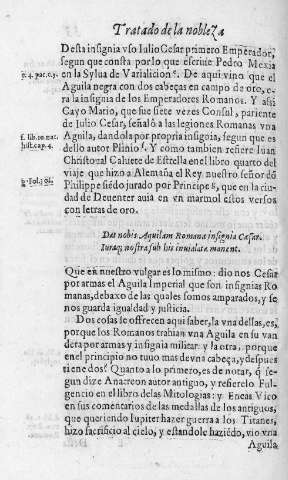 Tratado de la nobleza
Desta insignia vso Iulio Cesar primero Emperador,
segun que consta por lo que escriuie Pedro Mexia
p. 4. par. c. 3. en la Sylua de Varia licion. De aqui vino que el
Aguila negra con dos cabeças en campo de oro, e-
ra la insignia de los Emperadores Romanos. Y assi
Cayo Mario, que fue siete vezes Consul, pariente
de Iulio Cesar, señaló a las legiones Romanas vna
Aguila, dandola por propria insignia, segun que es
dello autor Plinio. Y como tambien refiere Iuan
Christoual Caluete de Estrella en el libro quarto del
viaje que hizo a Alemaña el Rey nuestro señor dõ
Philippe siẽdo jurado por Principe, que en la ciu-
dad de Deuenter auia en vn marmol estos versos
con letras de oro.
Dat nobis Aquilam Romana insignia Cæsar.
Iuraq; nostra sub his inuiolata manent.
Que en nuestro vulgar es lo mismo: dio nos Cesar
por armas el Aguila Imperial que son insignias Ro
manas, debaxo de las quales somos amparados, y se
nos guarda igualdad y justicia.
Dos cosas se offrecen aqui saber, la vna dellas, es,
porque los Romanos trahian vna Aguila en su van
dera por armas y insignia militar: y la otra, porque
en el principio no tuuo mas de vna cabeça, y despues
tiene dos? Quanto a lo primero, es de notar, q̃ se-
gun dize Anacreon autor antiguo, y refierelo Ful-
gencio en el libro de las Mitologias: y Eneas Vico
en sus comentarios de las medallas de los antiguos,
que queriendo Iupiter hazer guerra a los Titanes,
hizo sacrificio al cielo, y estandole haziẽdo, vio vna
Aguila